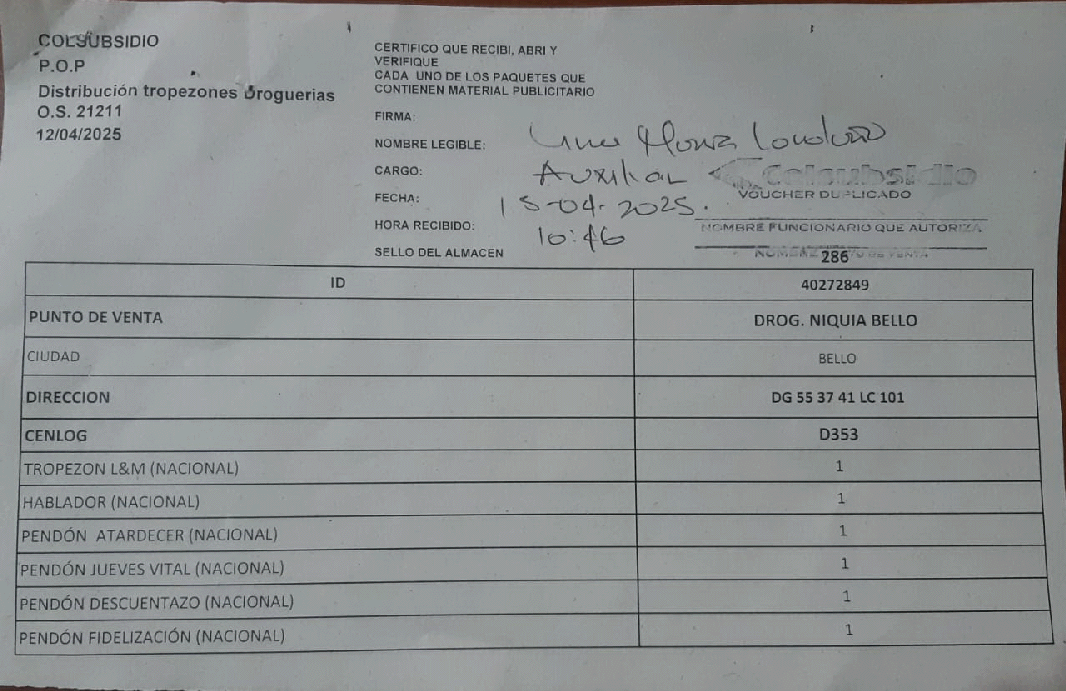 COLSUBSIDIO
P.O.P
Distribución tropezones Droguerias
O.S. 21211
12/04/2025
CERTIFICO QUE RECIBI, ABRI Y
VERIFIQUE
CADA UNO DE LOS PAQUETES QUE
CONTIENEN MATERIAL PUBLICITARIO
FIRMA:
NOMBRE LEGIBLE: Londoño
CARGO: Auxiliar
FECHA: 15-04-2025.
HORA RECIBIDO: 10:46
SELLO DEL ALMACEN
Colsubsidio
VOUCHER DUPLICADO
NOMBRE FUNCIONARIO QUE AUTORIZA
286
ID 40272849
PUNTO DE VENTA DROG. NIQUIA BELLO
CIUDAD BELLO
DIRECCION DG 55 37 41 LC 101
CENLOG D353
TROPEZON L&M (NACIONAL) 1
HABLADOR (NACIONAL) 1
PENDÓN ATARDECER (NACIONAL) 1
PENDÓN JUEVES VITAL (NACIONAL) 1
PENDÓN DESCUENTAZO (NACIONAL) 1
PENDÓN FIDELIZACIÓN (NACIONAL) 1